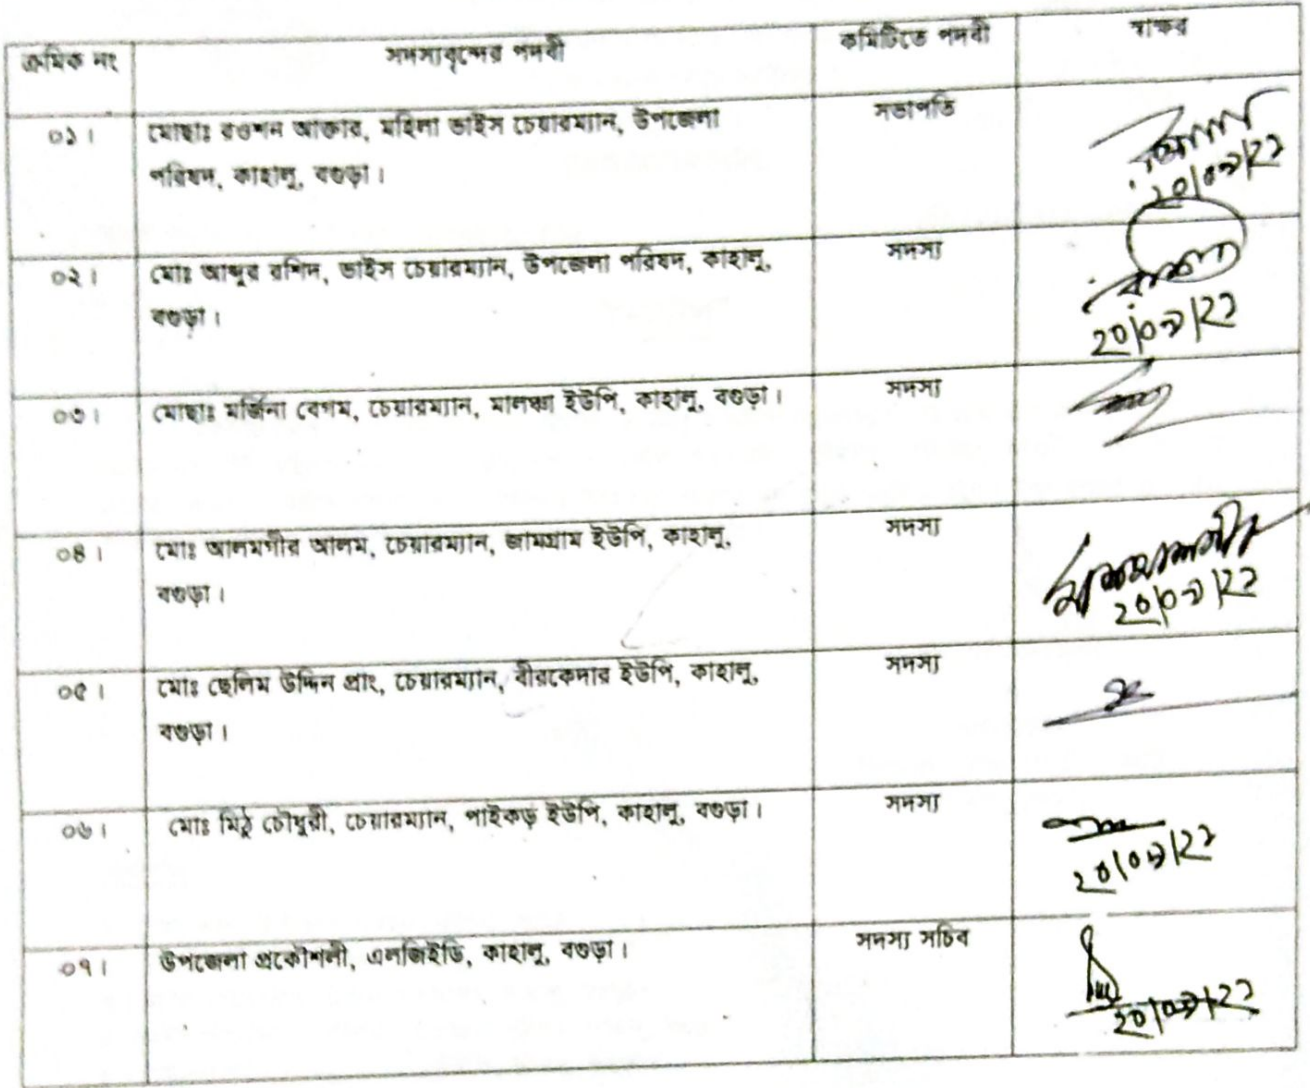 ক্রমিক নং সদস্যবৃন্দের পদবী কমিটিতে পদবী স্বাক্ষর
০১। মোছাঃ রওশন আক্তার, মহিলা ভাইস চেয়ারম্যান, উপজেলা সভাপতি
পরিষদ, কাহালু, বগুড়া।
০২। মোঃ আব্দুর রশিদ, ভাইস চেয়ারম্যান, উপজেলা পরিষদ, কাহালু, সদস্য
বগুড়া।
০৩। মোছাঃ মর্জিনা বেগম, চেয়ারম্যান, মালঞ্চা ইউপি, কাহালু, বগুড়া। সদস্য
০৪। মোঃ আলমগীর আলম, চেয়ারম্যান, জামগ্রাম ইউপি, কাহালু, সদস্য
বগুড়া।
০৫। মোঃ ছেলিম উদ্দিন প্রাং, চেয়ারম্যান, বীরকেদার ইউপি, কাহালু, সদস্য
বগুড়া।
০৬। মোঃ মিঠু চৌধুরী, চেয়ারম্যান, পাইকড় ইউপি, কাহালু, বগুড়া। সদস্য
০৭। উপজেলা প্রকৌশলী, এলজিইডি, কাহালু, বগুড়া। সদস্য সচিব